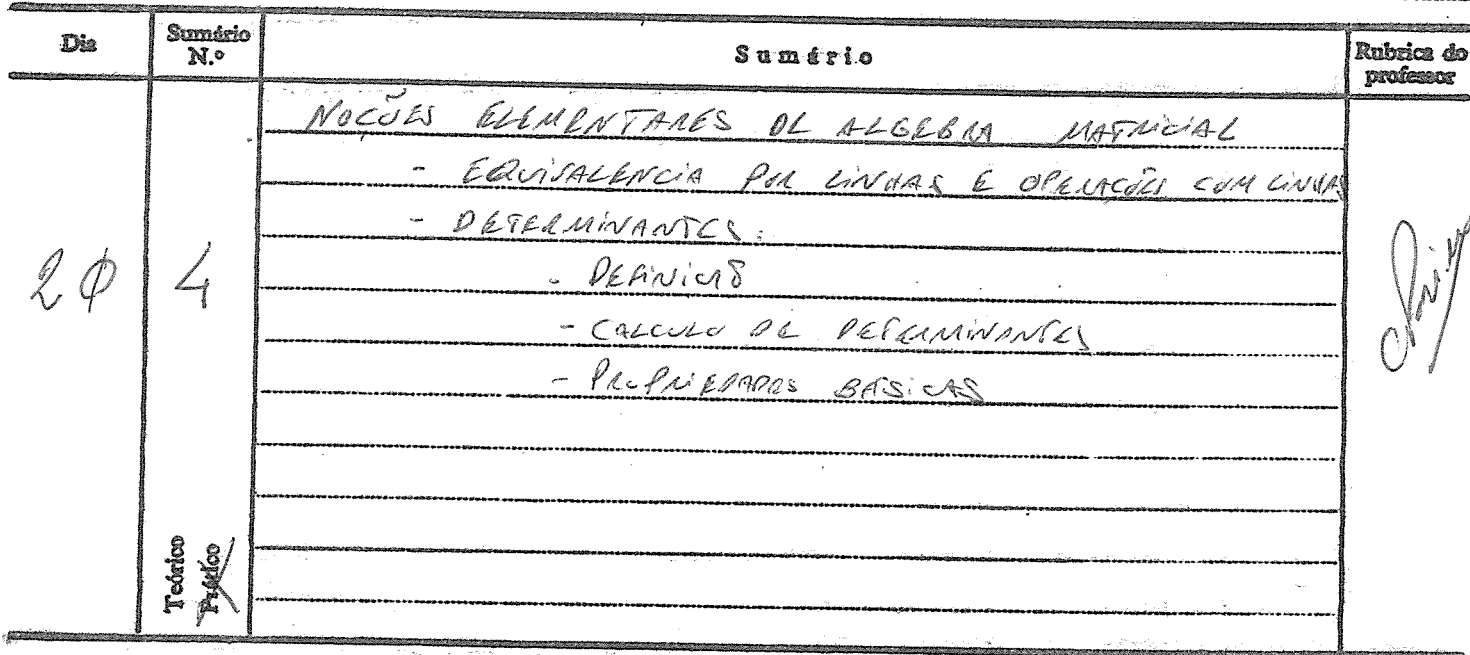 Dia
Sumário N.º
Sumário
Rubrica do professor
NOÇÕES ELEMENTARES DE ALGEBRA MATRICIAL
- EQUIVALENCIA POR LINHAS E OPERAÇÕES COM LINHAS
- DETERMINANTES:
- DEFINIÇÃO
- CALCULO DE DETERMINANTES
- PROPRIEDADES BÁSICAS
20
4
Teórico
Prático